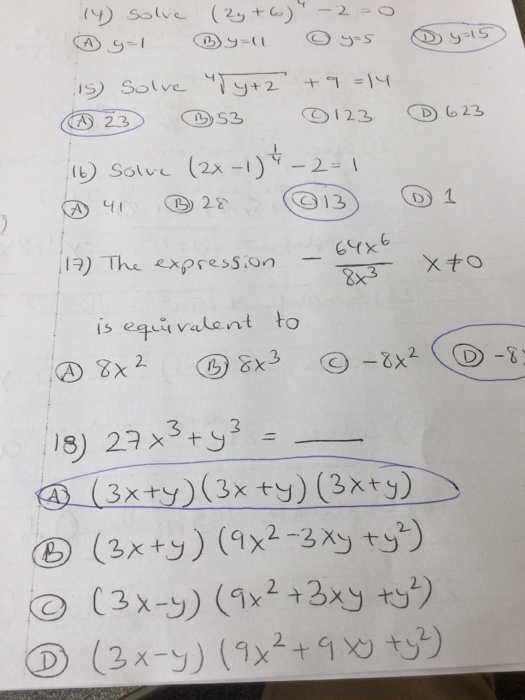 14) Solve (2y+6)⁴ - 2 = 0
Ⓐ y=1 Ⓑ y=11 Ⓒ y=5 Ⓓ y=15
15) Solve ⁴√(y+2) + 9 = 14
Ⓐ 23 Ⓑ 53 Ⓒ 123 Ⓓ 623
16) Solve (2x-1)^(1/4) - 2 = 1
Ⓐ 41 Ⓑ 28 Ⓒ 13 Ⓓ 1
17) The expression - 64x⁶/8x³ x≠0
is equivalent to
Ⓐ 8x² Ⓑ 8x³ Ⓒ -8x² Ⓓ -8
18) 27x³+y³ = ___
Ⓐ (3x+y)(3x+y)(3x+y)
Ⓑ (3x+y)(9x²-3xy+y²)
Ⓒ (3x-y)(9x²+3xy+y²)
Ⓓ (3x-y)(9x²+9xy+y²)